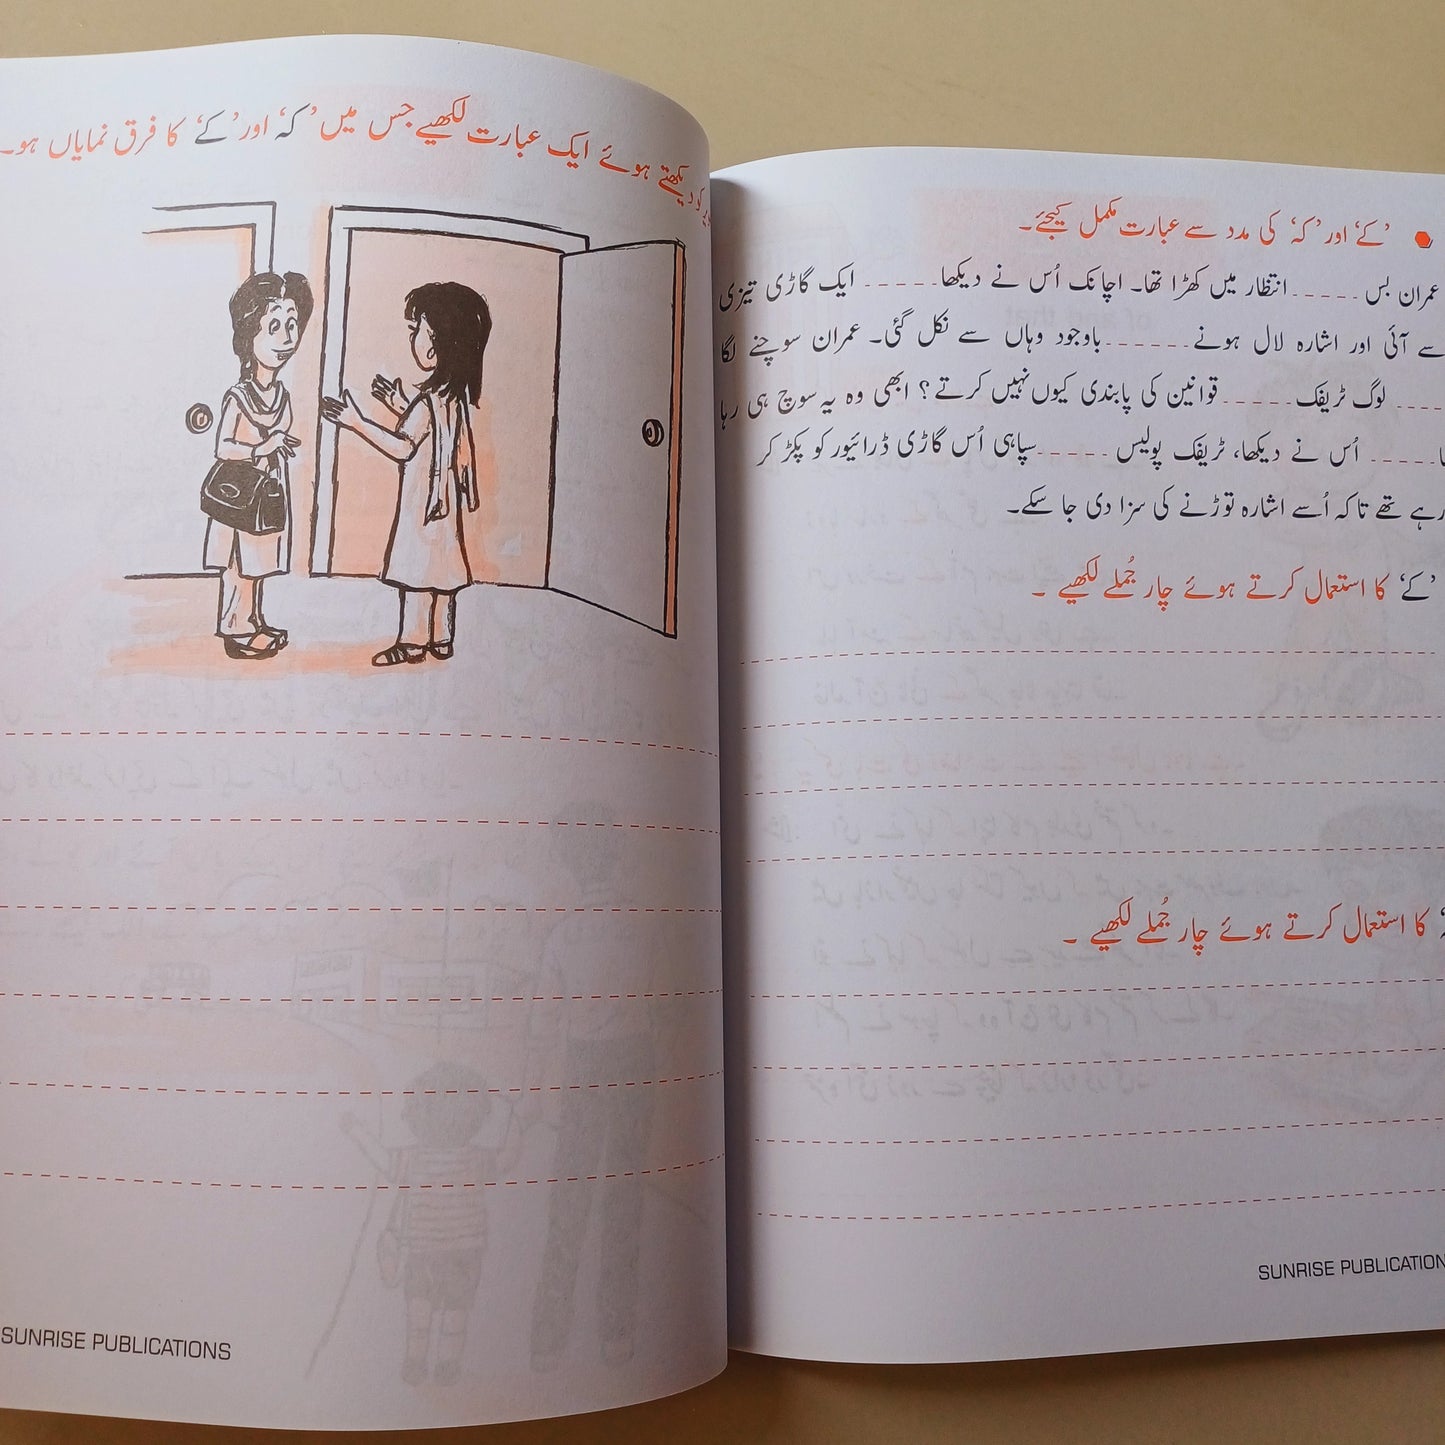 'کے' اور 'کہ' کی مدد سے عبارت مکمل کیجئے۔
عمران بس ----- انتظار میں کھڑا تھا۔ اچانک اُس نے دیکھا ----- ایک گاڑی تیزی
سے آئی اور اشارہ لال ہونے ------ باوجود وہاں سے نکل گئی۔ عمران سوچنے لگا
----- لوگ ٹریفک ----- قوانین کی پابندی کیوں نہیں کرتے؟ ابھی وہ یہ سوچ ہی رہا
----- اُس نے دیکھا، ٹریفک پولیس ----- سپاہی اُس گاڑی ڈرائیور کو پکڑ کر
رہے تھے تاکہ اُسے اشارہ توڑنے کی سزا دی جا سکے۔
'کے' کا استعمال کرتے ہوئے چار جُملے لکھیے۔
کا استعمال کرتے ہوئے چار جُملے لکھیے۔
SUNRISE PUBLICATION
کو دیکھتے ہوئے ایک عبارت لکھیے جس میں 'کہ' اور 'کے' کا فرق نمایاں ہو۔
SUNRISE PUBLICATIONS